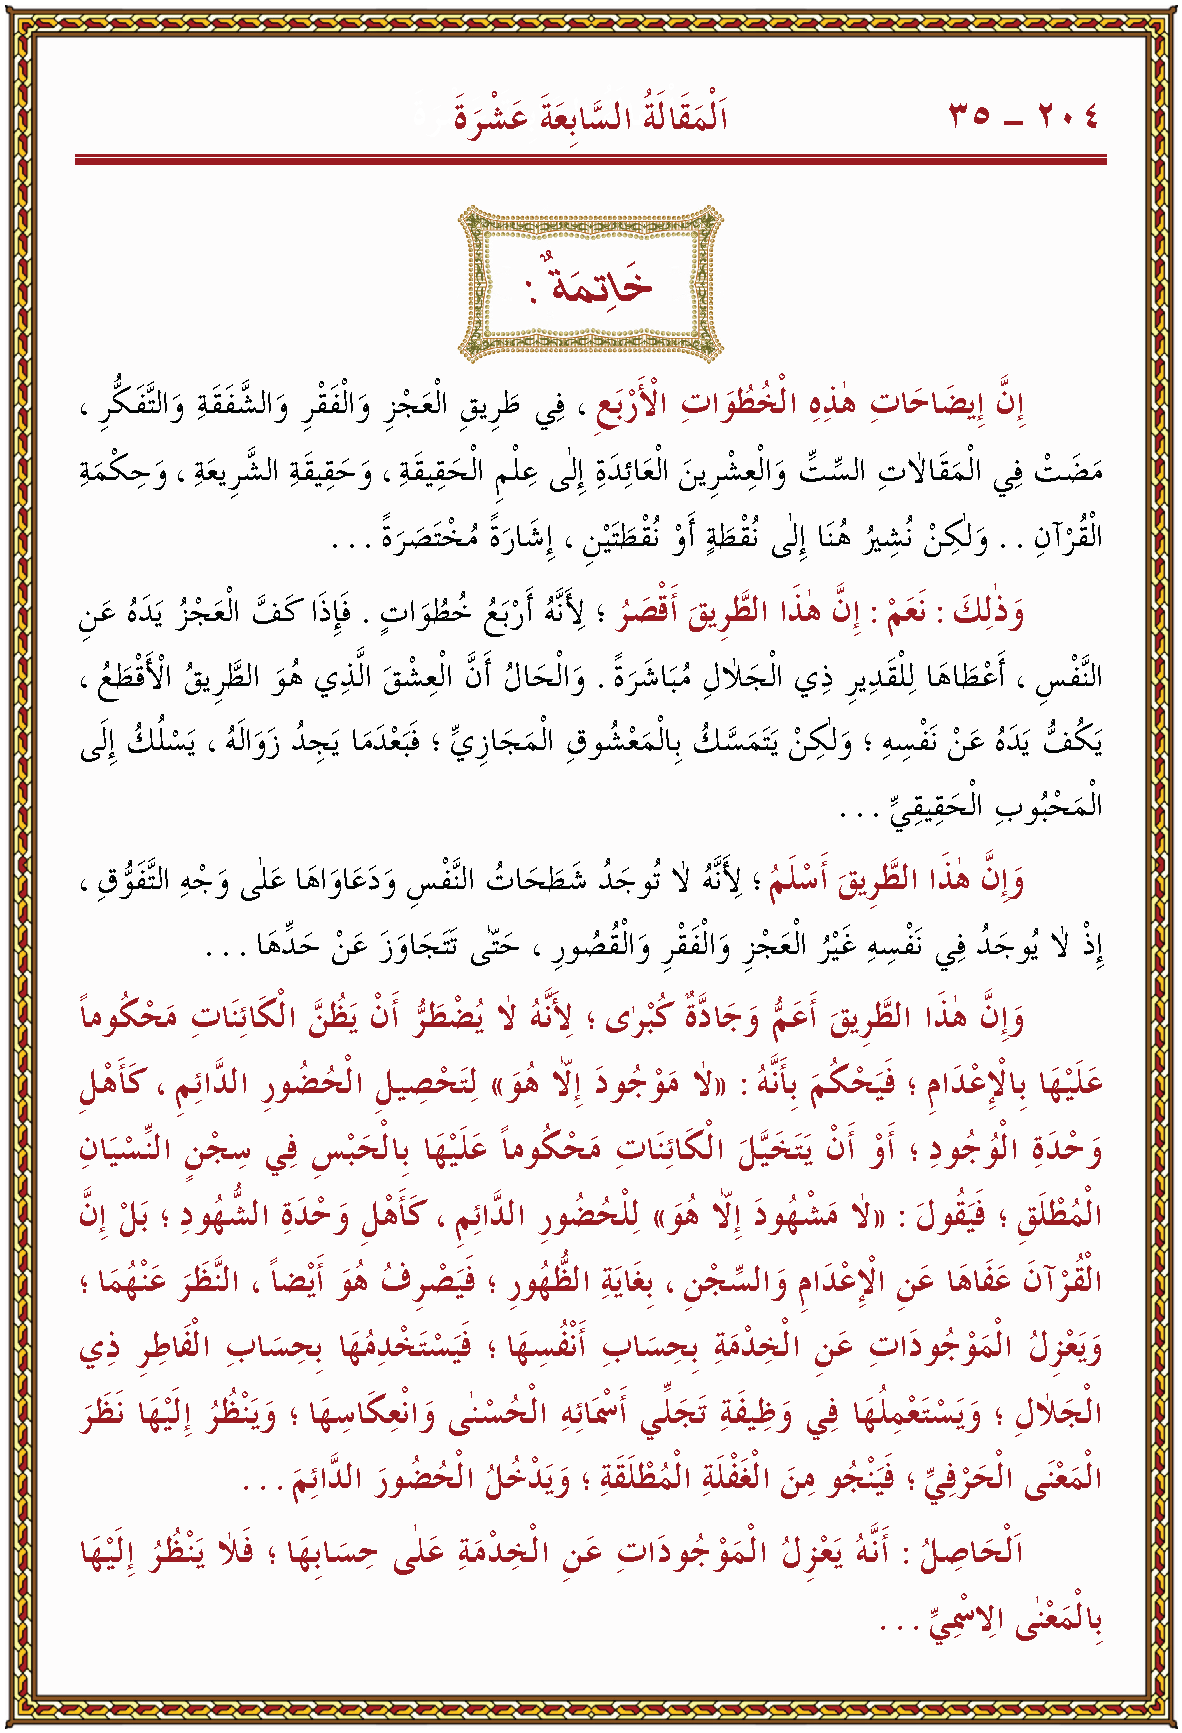 ٢٠٤ ـ ٣٥
اَلْمَقَالَةُ السَّابِعَةَ عَشْرَةَ
خَاتِمَةٌ :
إِنَّ إِيضَاحَاتِ هٰذِهِ الْخُطُوَاتِ الْأَرْبَعِ ، فِي طَرِيقِ الْعَجْزِ وَالْفَقْرِ وَالشَّفَقَةِ وَالتَّفَكُّرِ ،
مَضَتْ فِي الْمَقَالَاٰتِ السِّتِّ وَالْعِشْرِينَ الْعَائِدَةِ إِلَى عِلْمِ الْحَقِيقَةِ ، وَحَقِيقَةِ الشَّرِيعَةِ ، وَحِكْمَةِ
الْقُرْآنِ . . وَلٰكِنْ نُشِيرُ هُنَا إِلٰى نُقْطَةٍ أَوْ نُقْطَتَيْنِ ، إِشَارَةً مُخْتَصَرَةً . . .
وَذٰلِكَ : نَعَمْ : إِنَّ هٰذَا الطَّرِيقَ أَقْصَرُ ؛ لِأَنَّهُ أَرْبَعُ خُطُوَاتٍ . فَإِذَا كَفَّ الْعَجْزُ يَدَهُ عَنِ
النَّفْسِ ، أَعْطَاهَا لِلْقَدِيرِ ذِي الْجَلَاٰلِ مُبَاشَرَةً . وَالْحَالُ أَنَّ الْعِشْقَ الَّذِي هُوَ الطَّرِيقُ الْأَقْطَعُ ،
يَكُفُّ يَدَهُ عَنْ نَفْسِهِ ؛ وَلٰكِنْ يَتَمَسَّكُ بِالْمَعْشُوقِ الْمَجَازِيِّ ؛ فَبَعْدَمَا يَجِدُ زَوَالَهُ ، يَسْلُكُ إِلَى
الْمَحْبُوبِ الْحَقِيقِيِّ . . .
وَإِنَّ هٰذَا الطَّرِيقَ أَسْلَمُ ؛ لِأَنَّهُ لَاٰ تُوجَدُ شَطَحَاتُ النَّفْسِ وَدَعَاوَاهَا عَلٰى وَجْهِ التَّفَوُّقِ ،
إِذْ لَاٰ يُوجَدُ فِي نَفْسِهِ غَيْرُ الْعَجْزِ وَالْفَقْرِ وَالْقُصُورِ ، حَتّٰى تَتَجَاوَزَ عَنْ حَدِّهَا . . .
وَإِنَّ هٰذَا الطَّرِيقَ أَعَمُّ وَجَادَّةٌ كُبْرٰى ؛ لِأَنَّهُ لَاٰ يُضْطَرُّ أَنْ يَظُنَّ الْكَائِنَاتِ مَحْكُوماً
عَلَيْهَا بِالْإِعْدَامِ ؛ فَيَحْكُمَ بِأَنَّهُ : «لَاٰ مَوْجُودَ إِلَّاٰ هُوَ» لِتَحْصِيلِ الْحُضُورِ الدَّائِمِ ، كَأَهْلِ
وَحْدَةِ الْوُجُودِ ؛ أَوْ أَنْ يَتَخَيَّلَ الْكَائِنَاتِ مَحْكُوماً عَلَيْهَا بِالْحَبْسِ فِي سِجْنِ النِّسْيَانِ
الْمُطْلَقِ ؛ فَيَقُولَ : «لَاٰ مَشْهُودَ إِلَّاٰ هُوَ» لِلْحُضُورِ الدَّائِمِ ، كَأَهْلِ وَحْدَةِ الشُّهُودِ ؛ بَلْ إِنَّ
الْقُرْآنَ عَفَاهَا عَنِ الْإِعْدَامِ وَالسِّجْنِ ، بِغَايَةِ الظُّهُورِ ؛ فَيَصْرِفُ هُوَ أَيْضاً ، النَّظَرَ عَنْهُمَا ؛
وَيَعْزِلُ الْمَوْجُودَاتِ عَنِ الْخِدْمَةِ بِحِسَابِ أَنْفُسِهَا ؛ فَيَسْتَخْدِمُهَا بِحِسَابِ الْفَاطِرِ ذِي
الْجَلَاٰلِ ؛ وَيَسْتَعْمِلُهَا فِي وَظِيفَةِ تَجَلِّي أَسْمَائِهِ الْحُسْنٰى وَانْعِكَاسِهَا ؛ وَيَنْظُرُ إِلَيْهَا نَظَرَ
الْمَعْنَى الْحَرْفِيِّ ؛ فَيَنْجُو مِنَ الْغَفْلَةِ الْمُطْلَقَةِ ؛ وَيَدْخُلُ الْحُضُورَ الدَّائِمَ . . .
اَلْحَاصِلُ : أَنَّهُ يَعْزِلُ الْمَوْجُودَاتِ عَنِ الْخِدْمَةِ عَلٰى حِسَابِهَا ؛ فَلَاٰ يَنْظُرُ إِلَيْهَا
بِالْمَعْنٰى الِاسْمِيِّ . . .